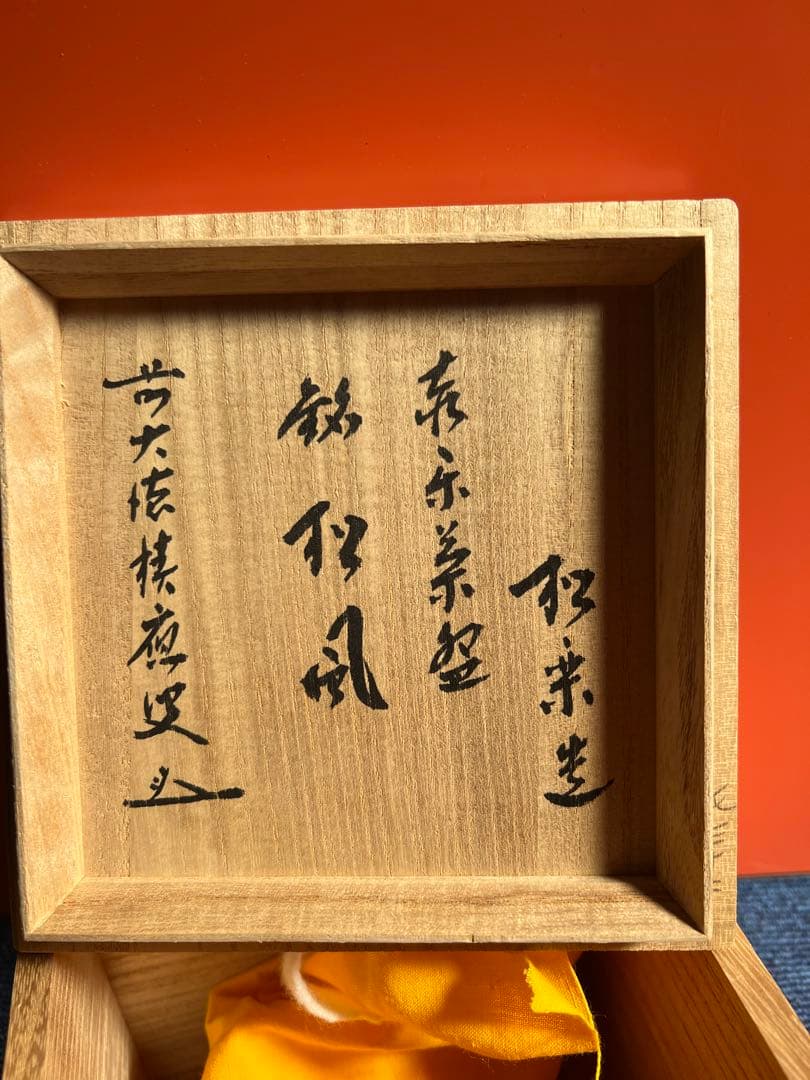 松楽造
赤楽茶盌
銘 松風
前大徳積應叟